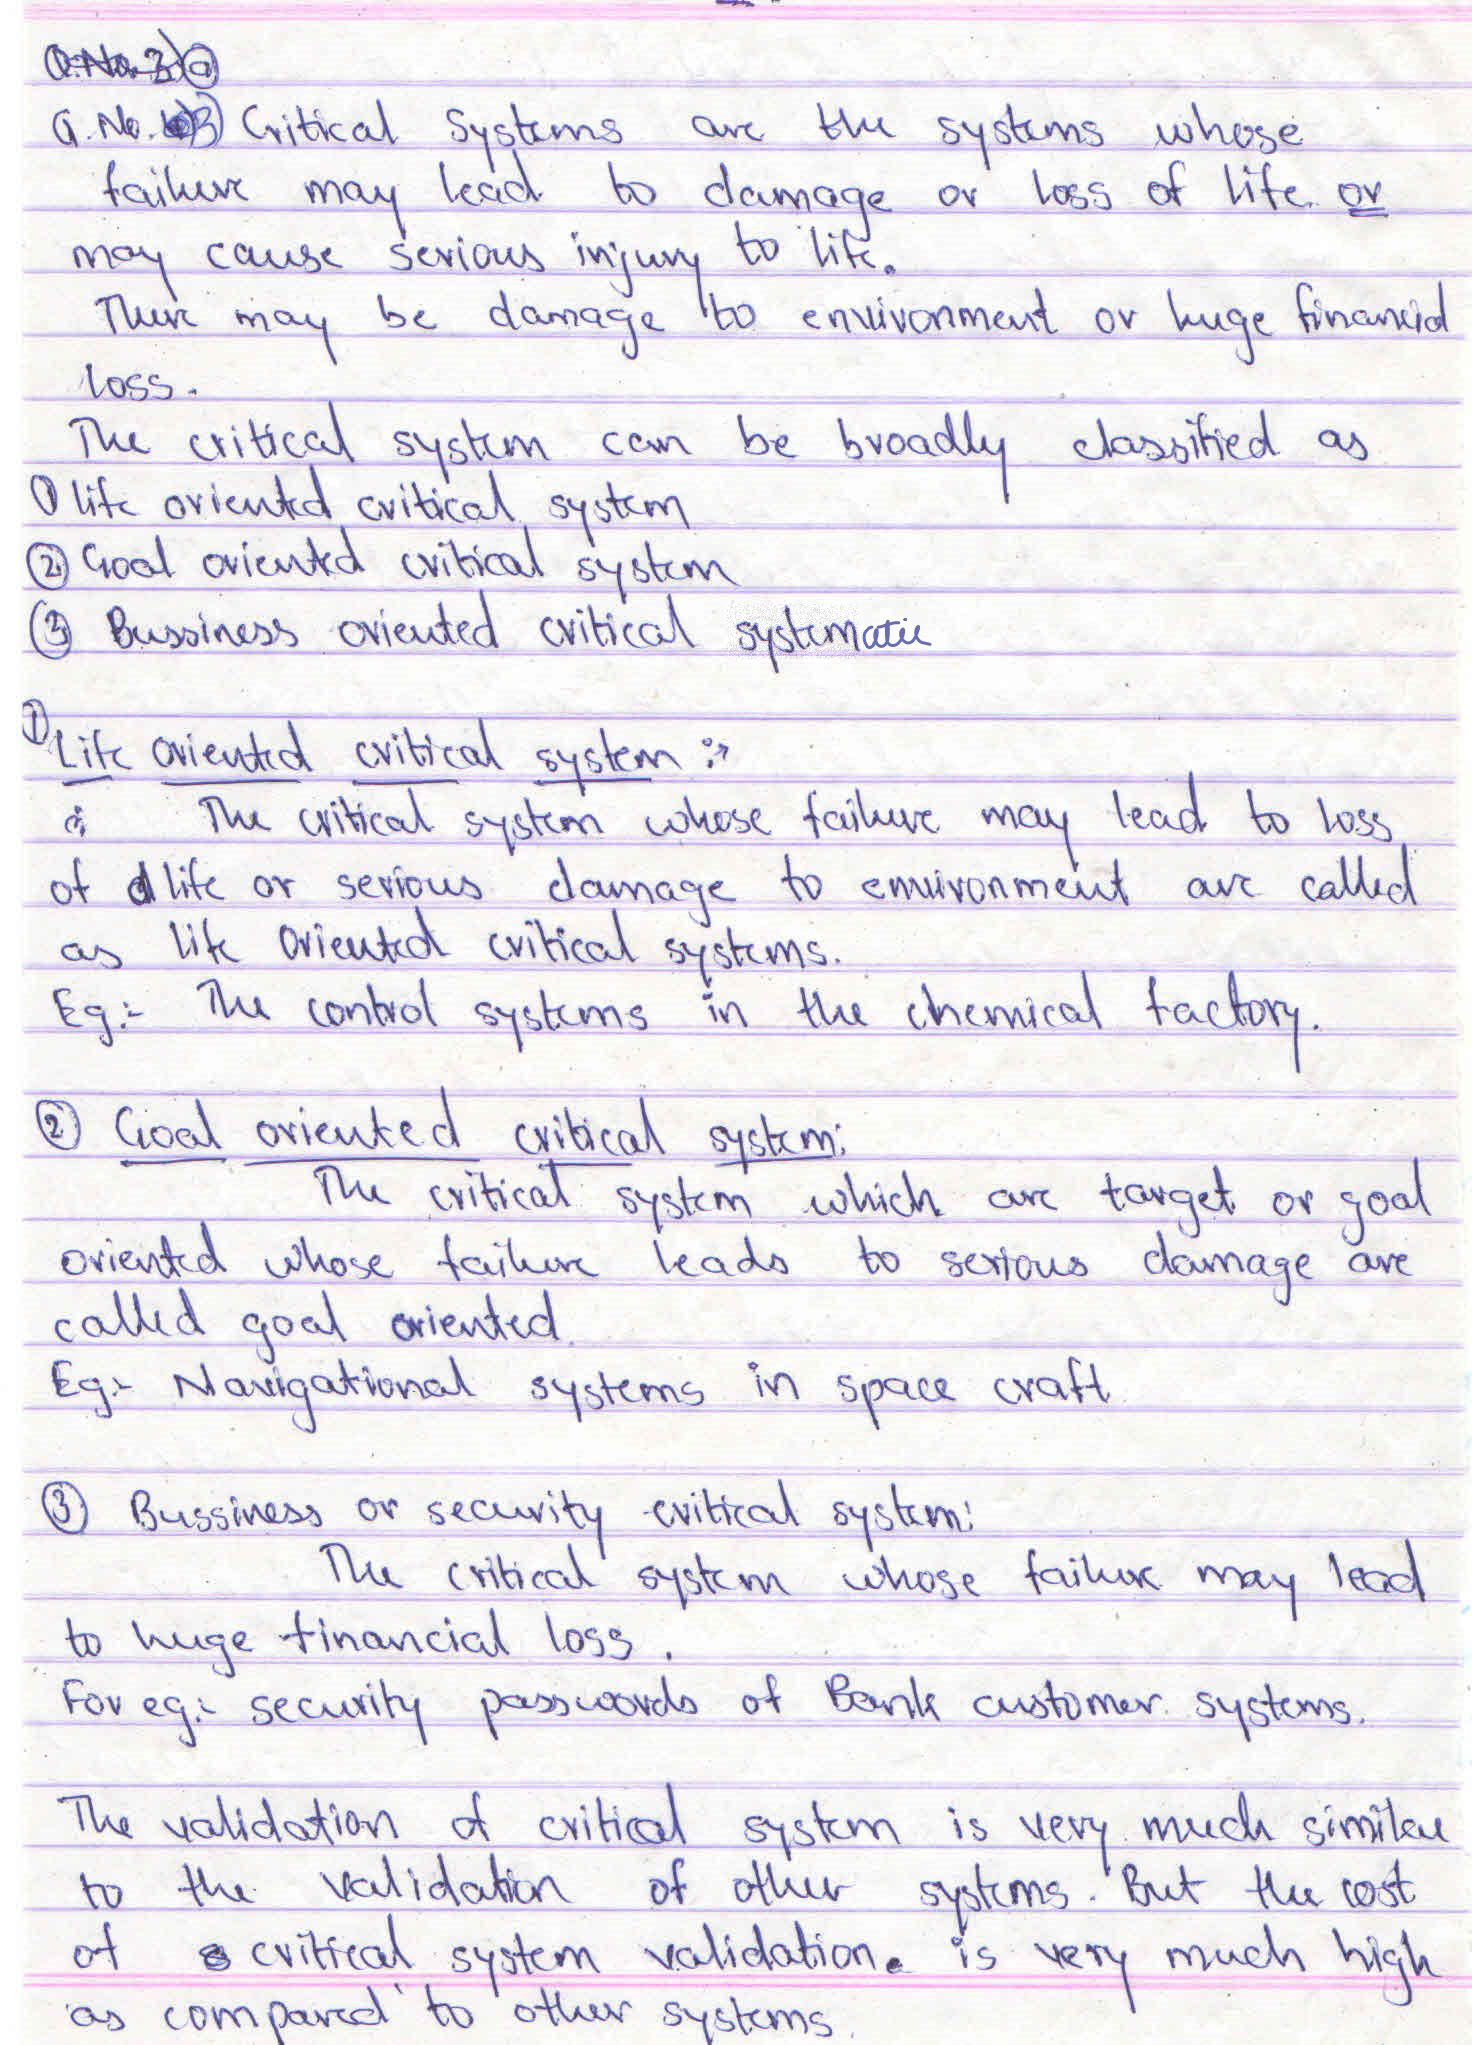 Q.No.3) a
Q.No. 3) Critical Systems are the systems whose
failure may lead to damage or loss of life or
may cause serious injury to life.
There may be damage to environment or huge financial
loss.
The critical system can be broadly classified as
① life oriented critical system
② Goal oriented critical system
③ Bussiness oriented critical systematic
① Life oriented critical system :→
The critical system whose failure may lead to loss
of life or serious damage to environment are called
as life oriented critical systems.
Eg:- The control systems in the chemical factory.
② Goal oriented critical system:
The critical system which are target or goal
oriented whose failure leads to serious damage are
called goal oriented
Eg:- Navigational systems in space craft
③ Bussiness or security critical system:
The critical system whose failure may lead
to huge financial loss.
For eg:- security passwords of Bank customer systems.
The validation of critical system is very much similar
to the validation of other systems. But the cost
of critical system validation. is very much high
as compared to other systems.